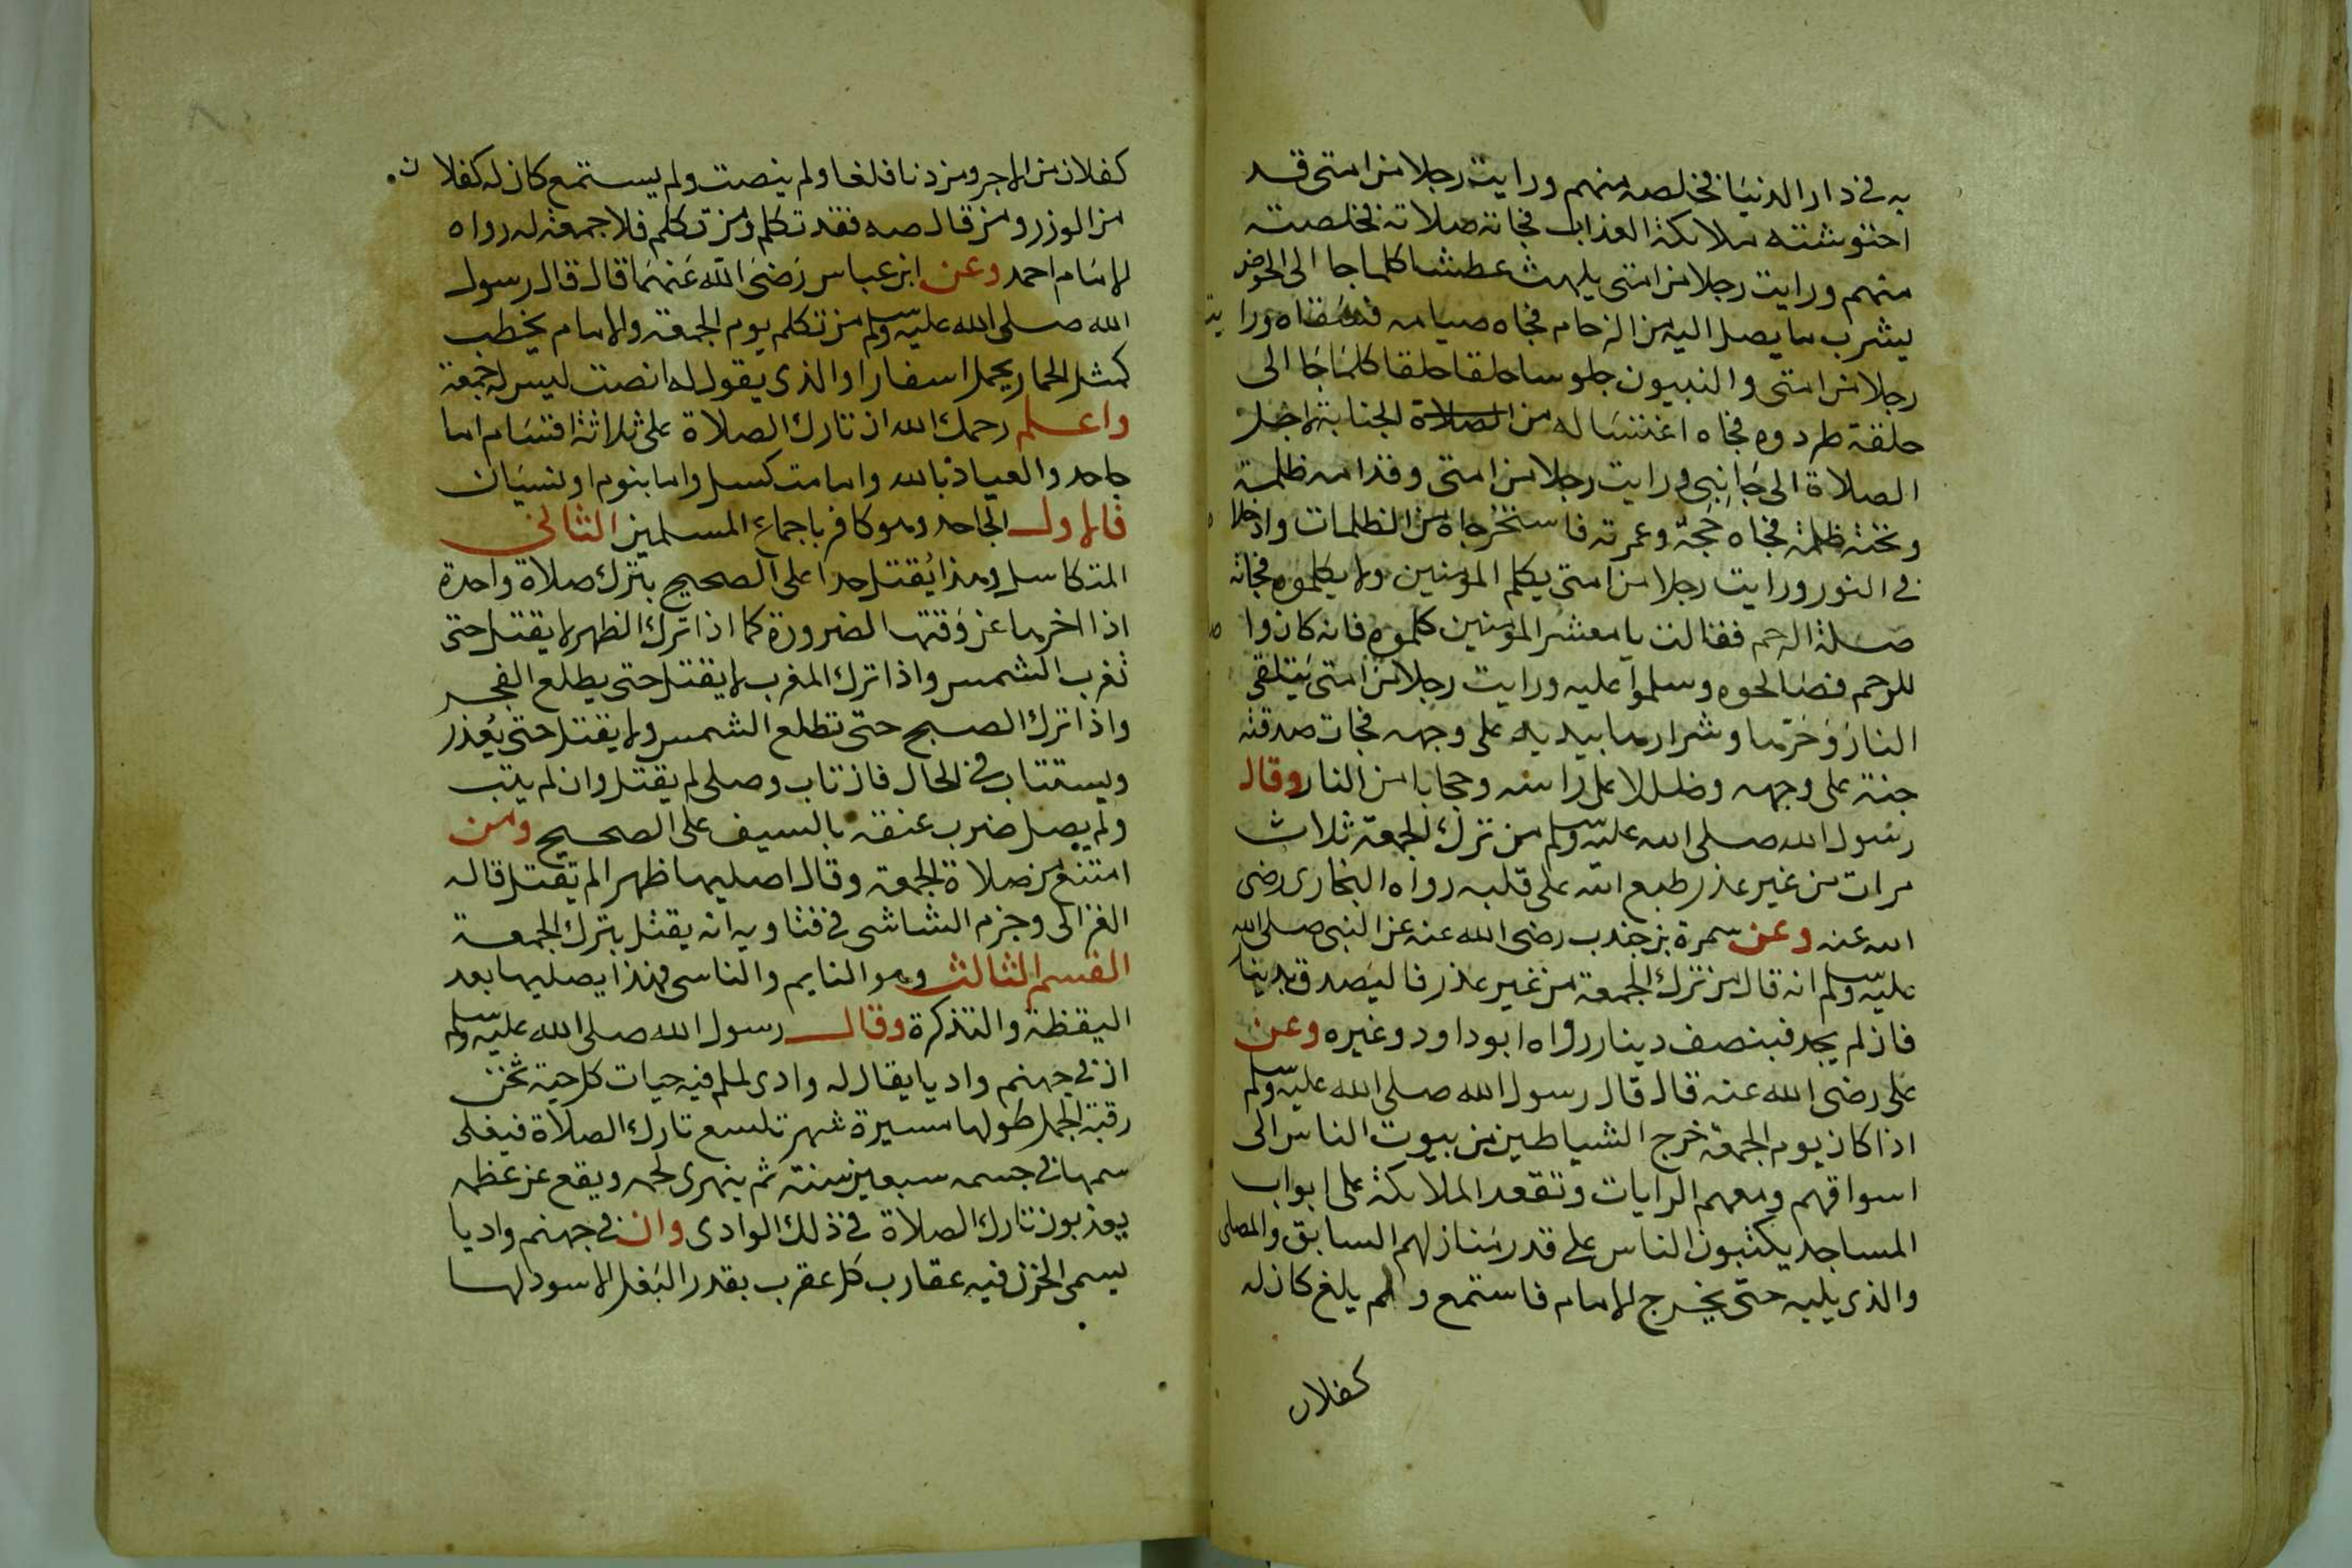 به في دار الدنيا فخلصه منهم ورايت رجلا من امتي قد
احتوشته ملائكة العذاب فجاته صلاته فخلصته
منهم ورايت رجلا من امتي يلهث عطشا كلما جا الى الحوض
ليشرب ما يصل اليه من الزحام فجاه صيامه فسقاه ورايت
رجلا من امتي والنبيون جلوسا حلقا حلقا كلما جا الى
حلقة طردوه فجاه اغتساله من الصلاة الجنابة لاجل
الصلاة الى جانبي ورايت رجلا من امتي وقدامه ظلمة
وتحته ظلمة فجاه حجة وعمرته فاستخرجاه من الظلمات وادخلاه
في النور ورايت رجلا من امتي يكلم المومنين ولا يكلموه فجاته
صلة الرحم فقالت يا معشر المومنين كلموه فانه كان واصلا
للرحم فصالحوه وسلموا عليه ورايت رجلا من امتي يتلقى
النار وحرها وشرارها بيديه على وجهه فجات صدقته
جنة على وجهه وظللا على راسه وحجابا من النار وقال
رسول الله صلى الله عليه وسلم من ترك الجمعة ثلاث
مرات من غير عذر طبع الله على قلبه رواه البخاري رضي
الله عنه وعن سمرة بن جندب رضي الله عنه عن النبي صلى الله
عليه وسلم انه قال من ترك الجمعة من غير عذر فاليصدق بدينار
فان لم يجد فبنصف دينار رواه ابو داود وغيره وعن
على رضي الله عنه قال قال رسول الله صلى الله عليه وسلم
اذا كان يوم الجمعة خرج الشياطين من بيوت الناس الى
اسواقهم ومعهم الرايات وتقعد الملائكة على ابواب
المساجد يكتبون الناس على قدر منازلهم السابق والمصلى
والذي يليه حتى يخرج الامام فاستمع ولم يلغ كان له
كفلان
كفلان من الاجر ومن دنا فلغا ولم ينصت ولم يستمع كان له كفلان
من الوزر ومن قال صه فقد تكلم ومن تكلم فلا جمعة له رواه
الامام احمد وعن ابن عباس رضي الله عنهما قال قال رسول
الله صلى الله عليه وسلم من تكلم يوم الجمعة والامام يخطب
كمثل الحمار يحمل اسفارا والذي يقول له انصت ليس له جمعة
واعلم رحمك الله ان تارك الصلاة على ثلاثة اقسام اما
جاحد والعياذ بالله واما متكسل واما بنوم او نسيان
فالاول الجاحد وهو كافر باجماع المسلمين الثاني
المتكاسل وهذا يقتل حدا على الصحيح بترك صلاة واحدة
اذا اخرها عن وقتها الضرورة كما اذا ترك الظهر لا يقتل حتى
تغرب الشمس واذا ترك المغرب لا يقتل حتى يطلع الفجر
واذا ترك الصبح حتى تطلع الشمس ولا يقتل حتى يعذر
ويستتاب في الحال فان تاب وصلى لم يقتل وان لم يتب
ولم يصل ضرب عنقه بالسيف على الصحيح ومن
امتنع من صلاة الجمعة وقال اصليها ظهرا لم يقتل قاله
الغزالى وجزم الشاشي في فتاويه انه يقتل بترك الجمعة
القسم الثالث وهو النايم والناسي فهذا يصليها بعد
اليقظة والتذكرة وقال رسول الله صلى الله عليه وسلم
ان في جهنم واديا يقال له وادي لملم فيه حيات كل حية ثخن
رقبة الجمل طولها مسيرة شهر تلسع تارك الصلاة فيغلى
سمها في جسمه سبعين سنة ثم ينهرى لحمه ويقع عن عظمه
يعذبون تارك الصلاة في ذلك الوادي وان في جهنم واديا
يسمى الحزن فيه عقارب كل عقرب بقدر البغل الاسود لها